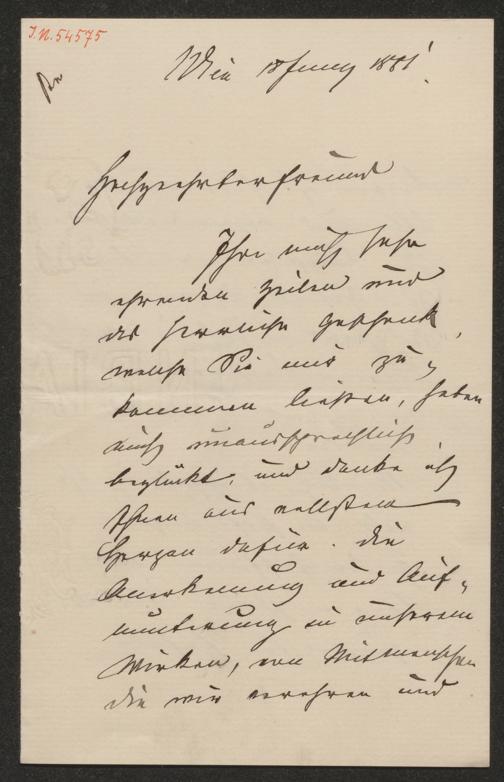 J.N. 54575
Wien 18 Juny 1881
Hochgeehrter Freund
Ihre mich sehr
ehrenden Zeilen und
das herrliche Geschenk,
welche Sie mir zu-
kommen ließen, haben
mich unaussprechlich
beglückt, und danke ich
Ihnen aus vollstem
Herzen dafür. Die
Anerkennung und Auf-
munterung in unserem
Wirken, von Mitmenschen
die wir verehren und